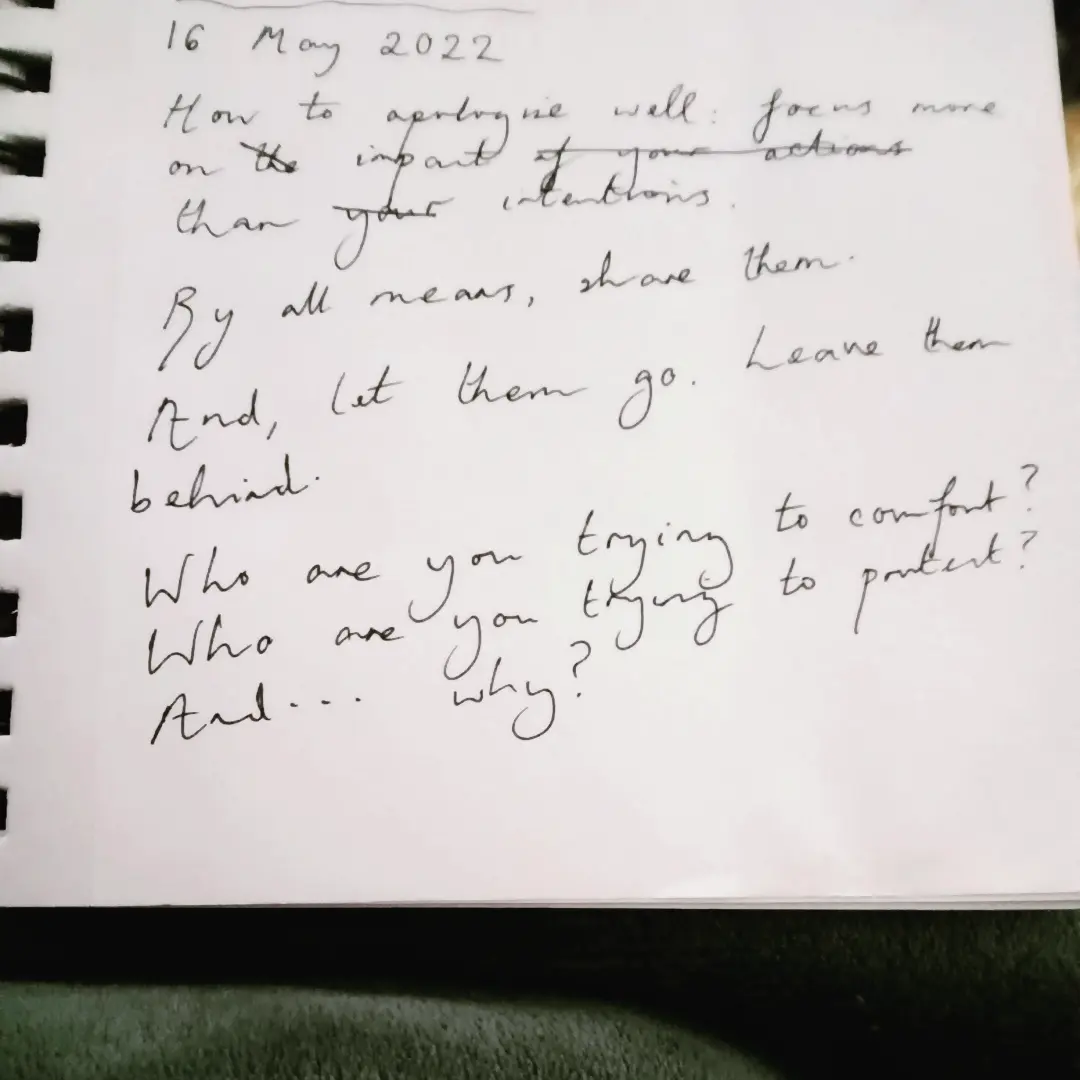 16 May 2022
How to apologise well: focus more
on the impact of your actions
than your intentions.
By all means, share them.
And, let them go. Leave them
behind.
Who are you trying to comfort?
Who are you trying to protect?
And... why?